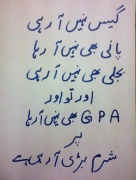 گیس نہیں آ رہی
پانی بھی نہیں آ رہا
بجلی بھی نہیں آ رہی
اور تو اور
GPA بھی نہیں آ رہا
پر
شرم بڑی آ رہی ہے